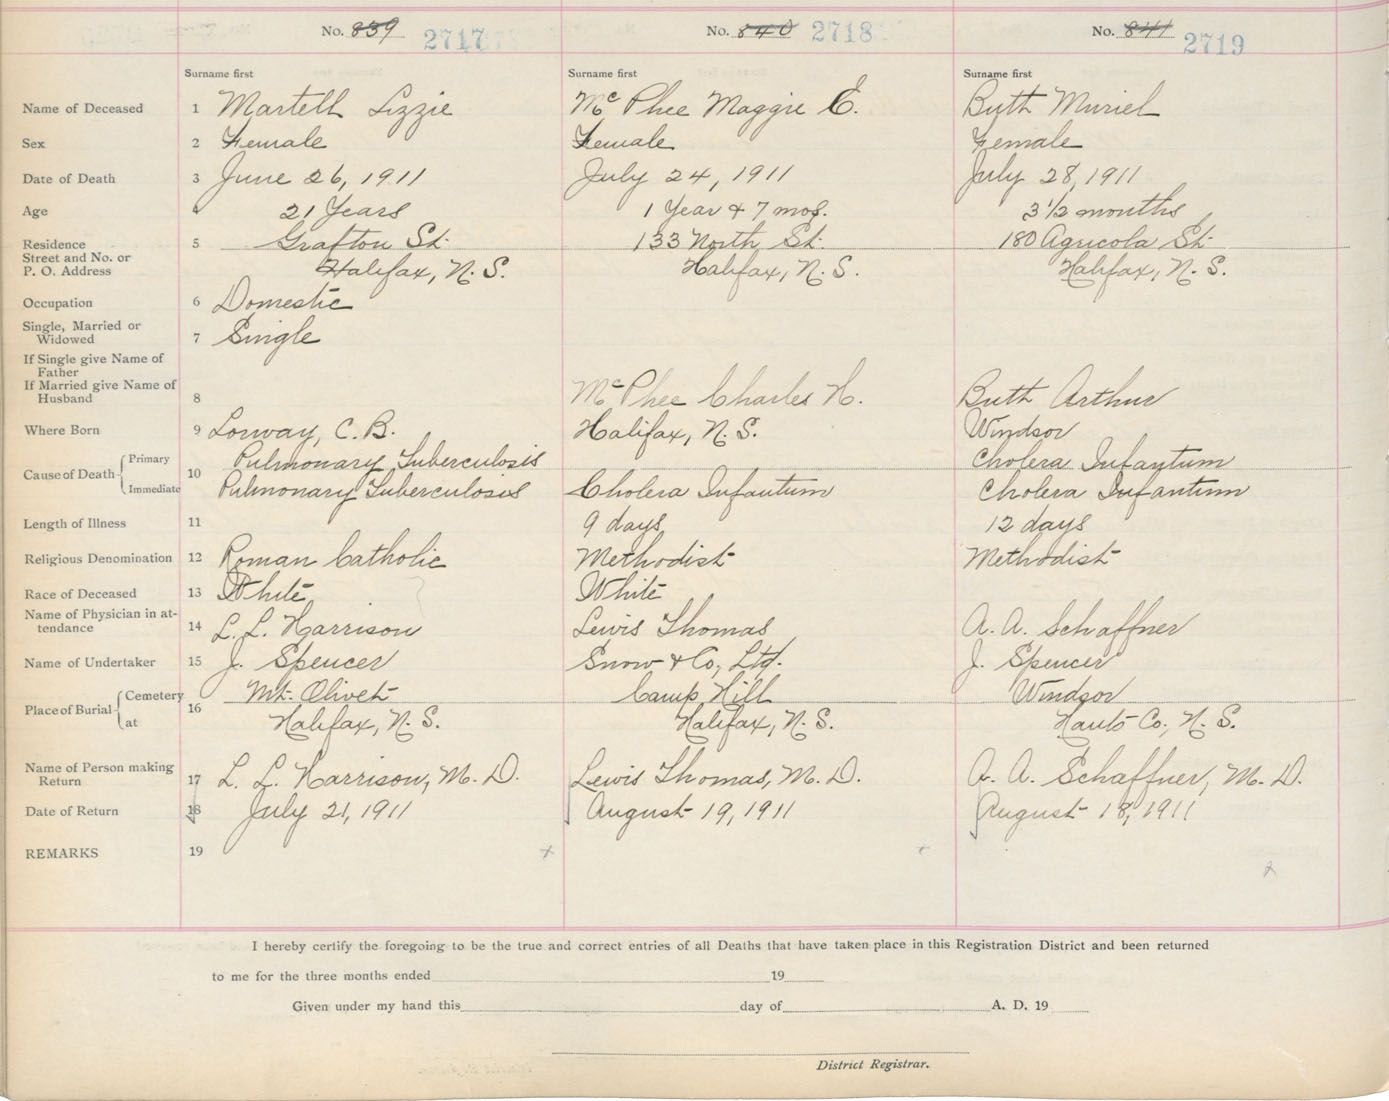 No. 839 2717
No. 840 2718
No. 841 2719
Surname first Surname first Surname first
Name of Deceased 1 Martell Lizzie McPhee Maggie E. Buth Muriel
Sex 2 Female Female Female
Date of Death 3 June 26, 1911 July 24, 1911 July 28, 1911
Age 4 21 Years 1 Year & 7 mos. 3½ months
Residence 5 Grafton St. 133 North St. 180 Agricola St.
Street and No. or
P. O. Address Halifax, N. S. Halifax, N. S. Halifax, N. S.
Occupation 6 Domestic
Single, Married or
Widowed 7 Single
If Single give Name of
Father
If Married give Name of
Husband 8 McPhee Charles H. Buth Arthur
Where Born 9 Lorway, C. B. Halifax, N. S. Windsor
Cause of Death Primary 10 Pulmonary Tuberculosis Cholera Infantum
Immediate Pulmonary Tuberculosis Cholera Infantum Cholera Infantum
Length of Illness 11 9 days 12 days
Religious Denomination 12 Roman Catholic Methodist Methodist
Race of Deceased 13 White White
Name of Physician in at-
tendance 14 L. L. Harrison Lewis Thomas A. A. Schaffner
Name of Undertaker 15 J. Spencer Snow & Co., Ltd. J. Spencer
Place of Burial Cemetery 16 Mt. Olivet Camp Hill Windsor
at Halifax, N. S. Halifax, N. S. Hants Co., N. S.
Name of Person making
Return 17 L. L. Harrison, M. D. Lewis Thomas, M. D. A. A. Schaffner, M. D.
Date of Return 18 July 21, 1911 August 19, 1911 August 18, 1911
REMARKS 19
I hereby certify the foregoing to be the true and correct entries of all Deaths that have taken place in this Registration District and been returned
to me for the three months ended 19
Given under my hand this day of A. D. 19
District Registrar.